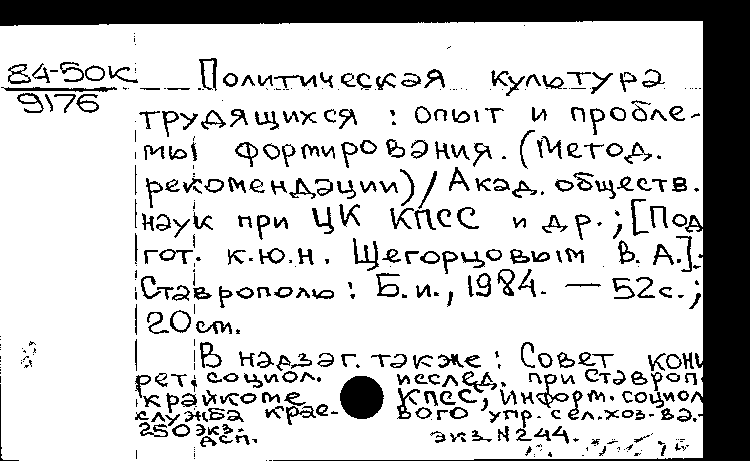 84-50к
9176
Политическая культура
трудящихся : опыт и пробле-
мы формирования. (Метод.
рекомендации) / Акад. обществ.
наук при ЦК КПСС и др. ; [Под
гот. к.ю.н. Щегорцовым В. А.].-
Ставрополь : Б.и., 1984. — 52с. ;
20 см.
В надзаг. также : Совет кон
рет. социол. исслед. при Ставроп.
крайкоме КПСС, информ. социол
служба крае- вого упр. сел.хоз-ва.-
250 экз. экз. N 244.
дсп.